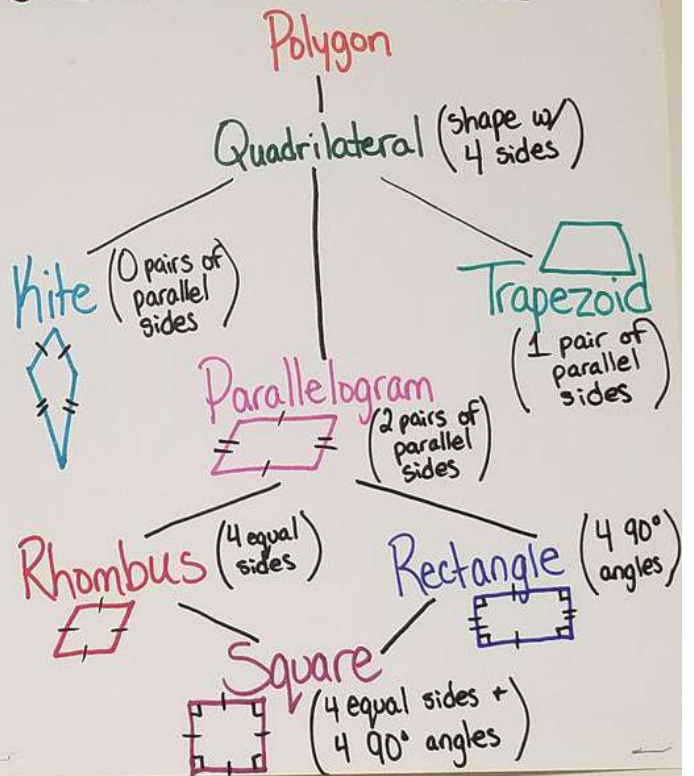 Polygon
Quadrilateral
(shape w/
4 sides)
Kite
(0 pairs of
parallel
sides)
Trapezoid
(1 pair of
parallel
sides)
Parallelogram
(2 pairs of
parallel
sides)
Rhombus
(4 equal
sides)
Rectangle
(4 90°
angles)
Square
(4 equal sides +
4 90° angles)